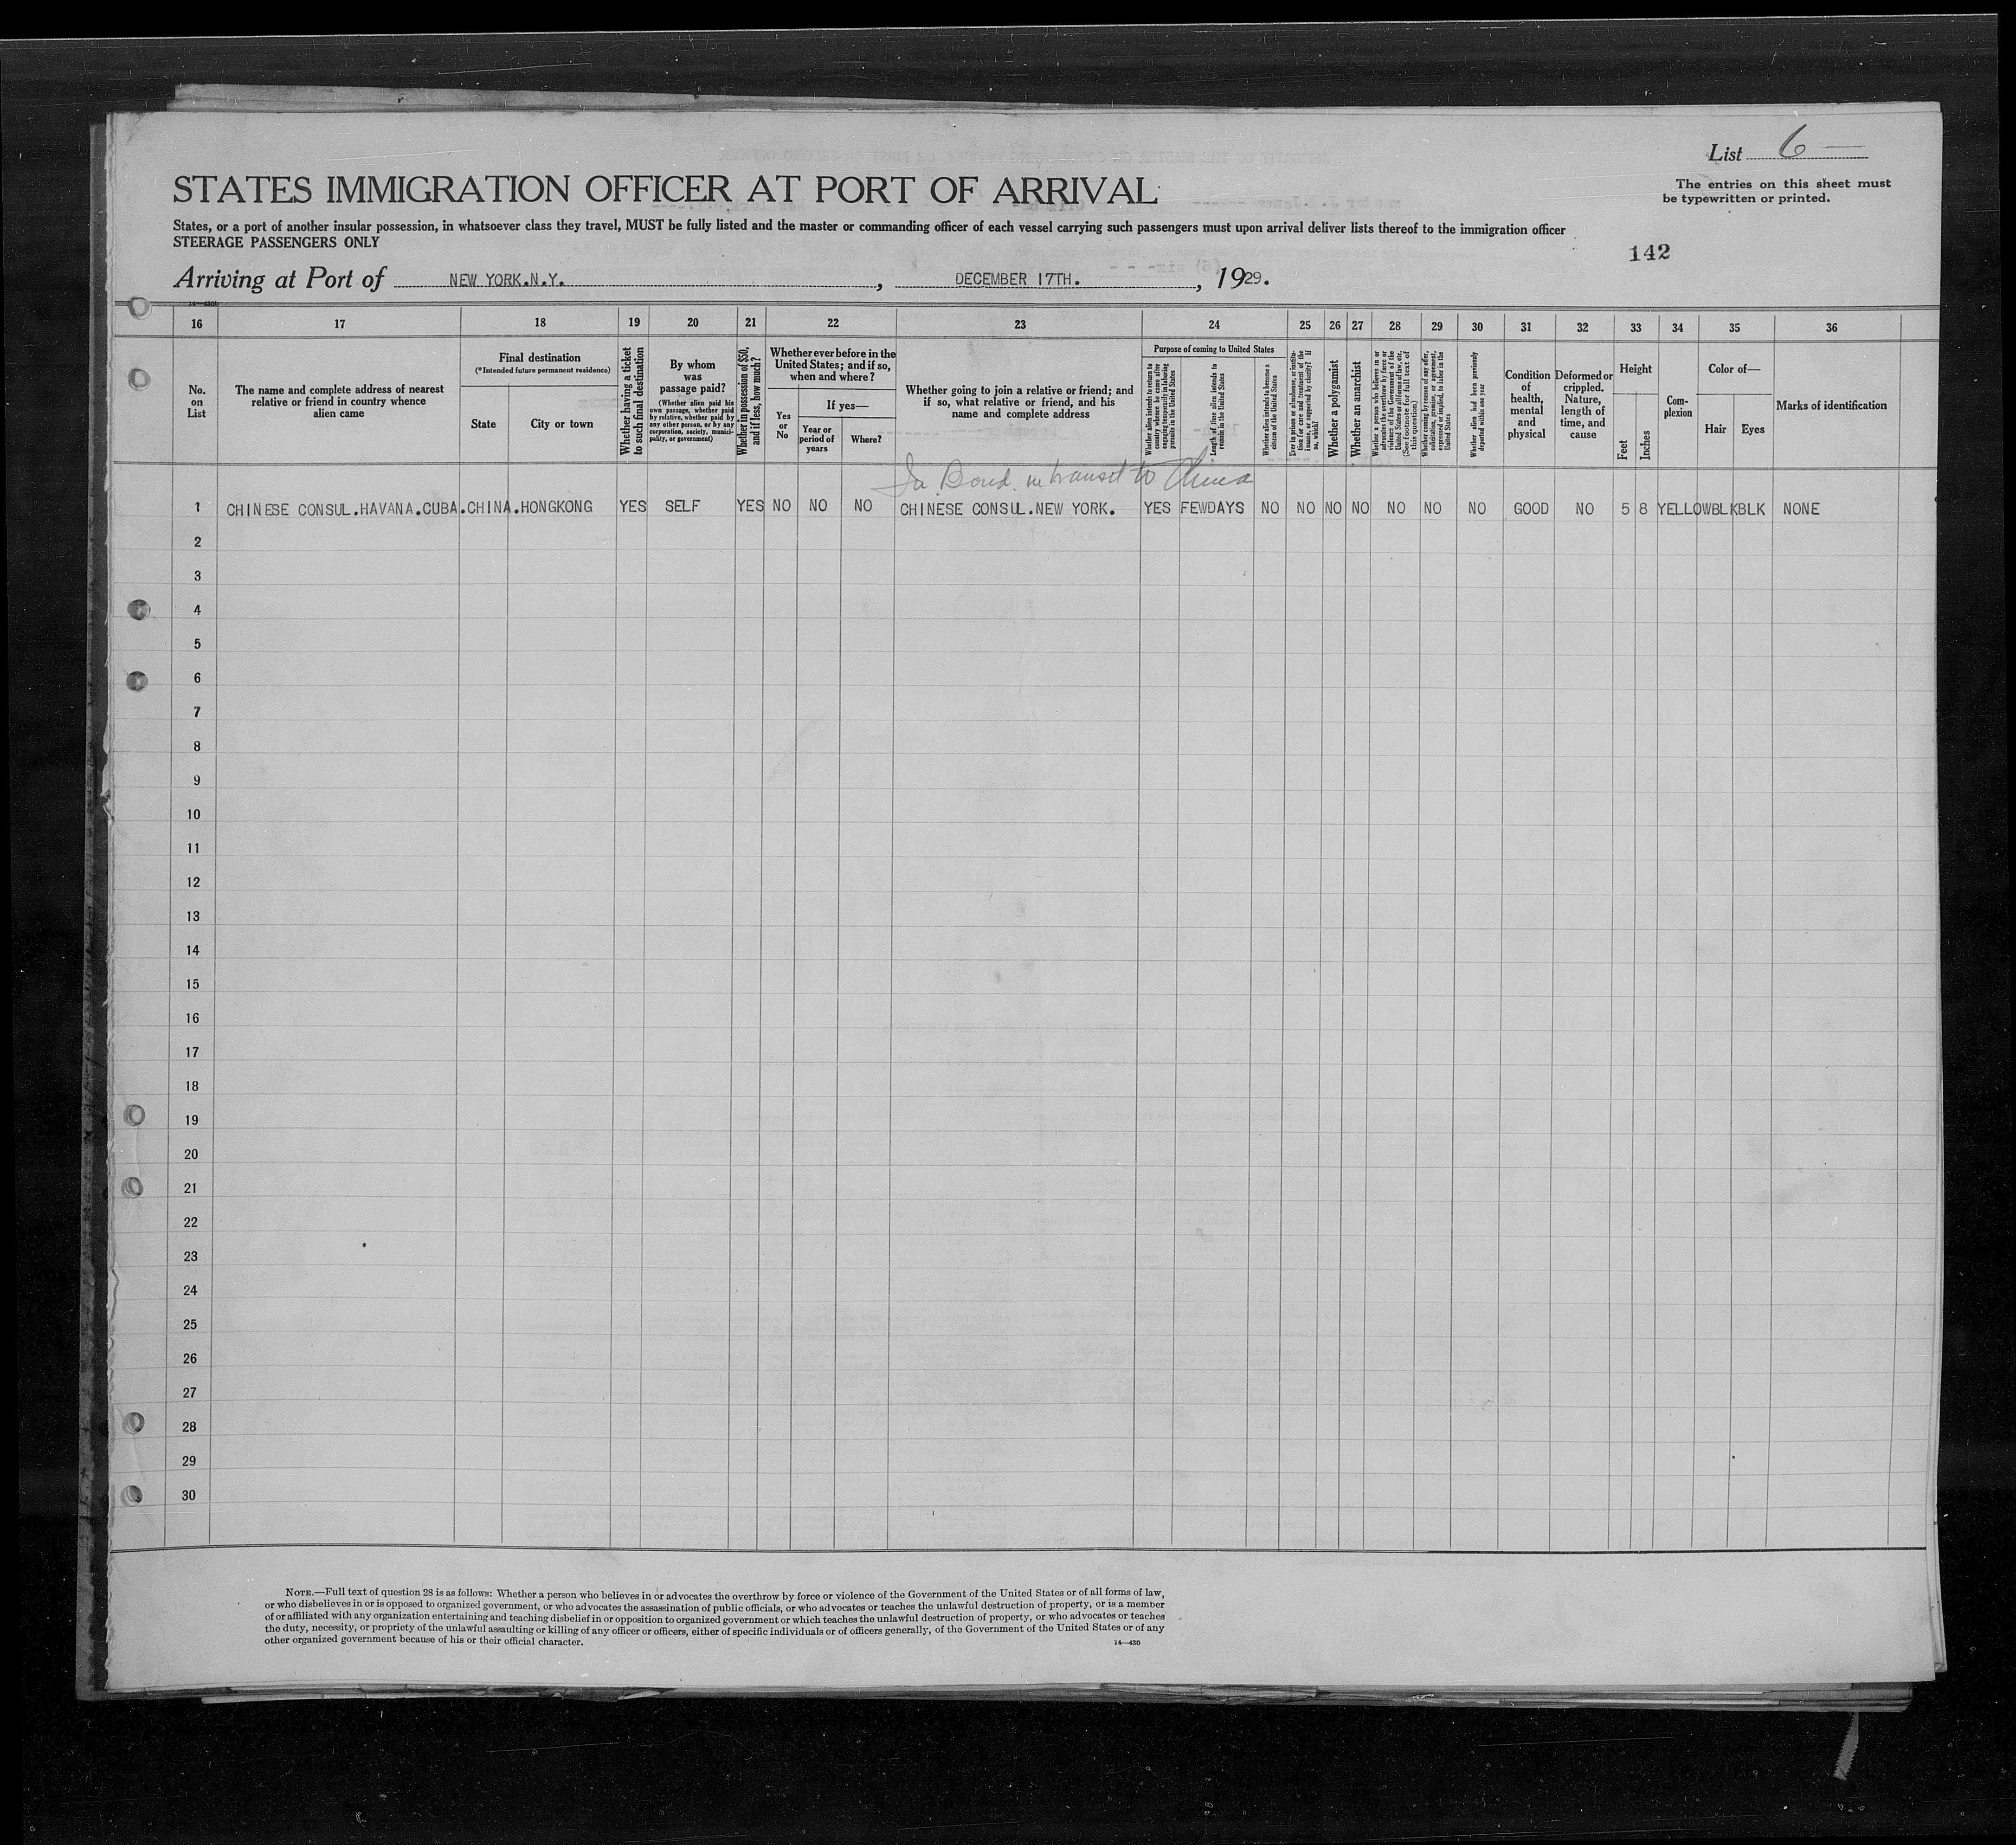 List 6 —
STATES IMMIGRATION OFFICER AT PORT OF ARRIVAL
The entries on this sheet must
be typewritten or printed.
States, or a port of another insular possession, in whatsoever class they travel, MUST be fully listed and the master or commanding officer of each vessel carrying such passengers must upon arrival deliver lists thereof to the immigration officer
STEERAGE PASSENGERS ONLY
142
Arriving at Port of NEW YORK.N.Y. , DECEMBER 17TH. , 1929.
14—430b
16 17 18 19 20 21 22 23 24 25 26 27 28 29 30 31 32 33 34 35 36
No.
on
List
The name and complete address of nearest
relative or friend in country whence
alien came
Final destination
(*Intended future permanent residence)
State
City or town
Whether having a ticket
to such final destination
By whom
was
passage paid?
(Whether alien paid his
own passage, whether paid
by relative, whether paid by
any other person, or by any
corporation, society, munici-
pality, or government)
Whether in possession of $50,
and if less, how much?
Whether ever before in the
United States; and if so,
when and where?
Yes
or
No
If yes—
Year or
period of
years
Where?
Whether going to join a relative or friend; and
if so, what relative or friend, and his
name and complete address
Purpose of coming to United States
Whether alien intends to return to
country whence he came after
engaging temporarily in laboring
pursuits in the United States
Length of time alien intends to
remain in the United States
Whether alien intends to become a
citizen of the United States
Ever in prison or almshouse or institu-
tion for care and treatment of the
insane, or supported by charity? If
so, which?
Whether a polygamist
Whether an anarchist
Whether a person who believes in or
advocates the overthrow by force or
violence of the Government of the
United States or all forms of law, etc.
(See footnote for full text of
this question)
Whether coming by reason of any offer,
solicitation, promise, or agreement,
expressed or implied, to labor in the
United States
Whether alien had been previously
deported within one year
Condition
of
health,
mental
and
physical
Deformed or
crippled.
Nature,
length of
time, and
cause
Height
Feet
Inches
Com-
plexion
Color of—
Hair
Eyes
Marks of identification
In Bond in transit to China
1 CHINESE CONSUL.HAVANA.CUBA.CHINA.HONGKONG YES SELF YES NO NO NO CHINESE CONSUL.NEW YORK. YES FEWDAYS NO NO NO NO NO NO NO GOOD NO 5 8 YELLOWBLKBLK NONE
2
3
4
5
6
7
8
9
10
11
12
13
14
15
16
17
18
19
20
21
22
23
24
25
26
27
28
29
30
NOTE.—Full text of question 28 is as follows: Whether a person who believes in or advocates the overthrow by force or violence of the Government of the United States or of all forms of law,
or who disbelieves in or is opposed to organized government, or who advocates the assassination of public officials, or who advocates or teaches the unlawful destruction of property, or is a member
of or affiliated with any organization entertaining and teaching disbelief in or opposition to organized government or which teaches the unlawful destruction of property, or who advocates or teaches
the duty, necessity, or propriety of the unlawful assaulting or killing of any officer or officers, either of specific individuals or of officers generally, of the Government of the United States or of any
other organized government because of his or their official character.
14—430